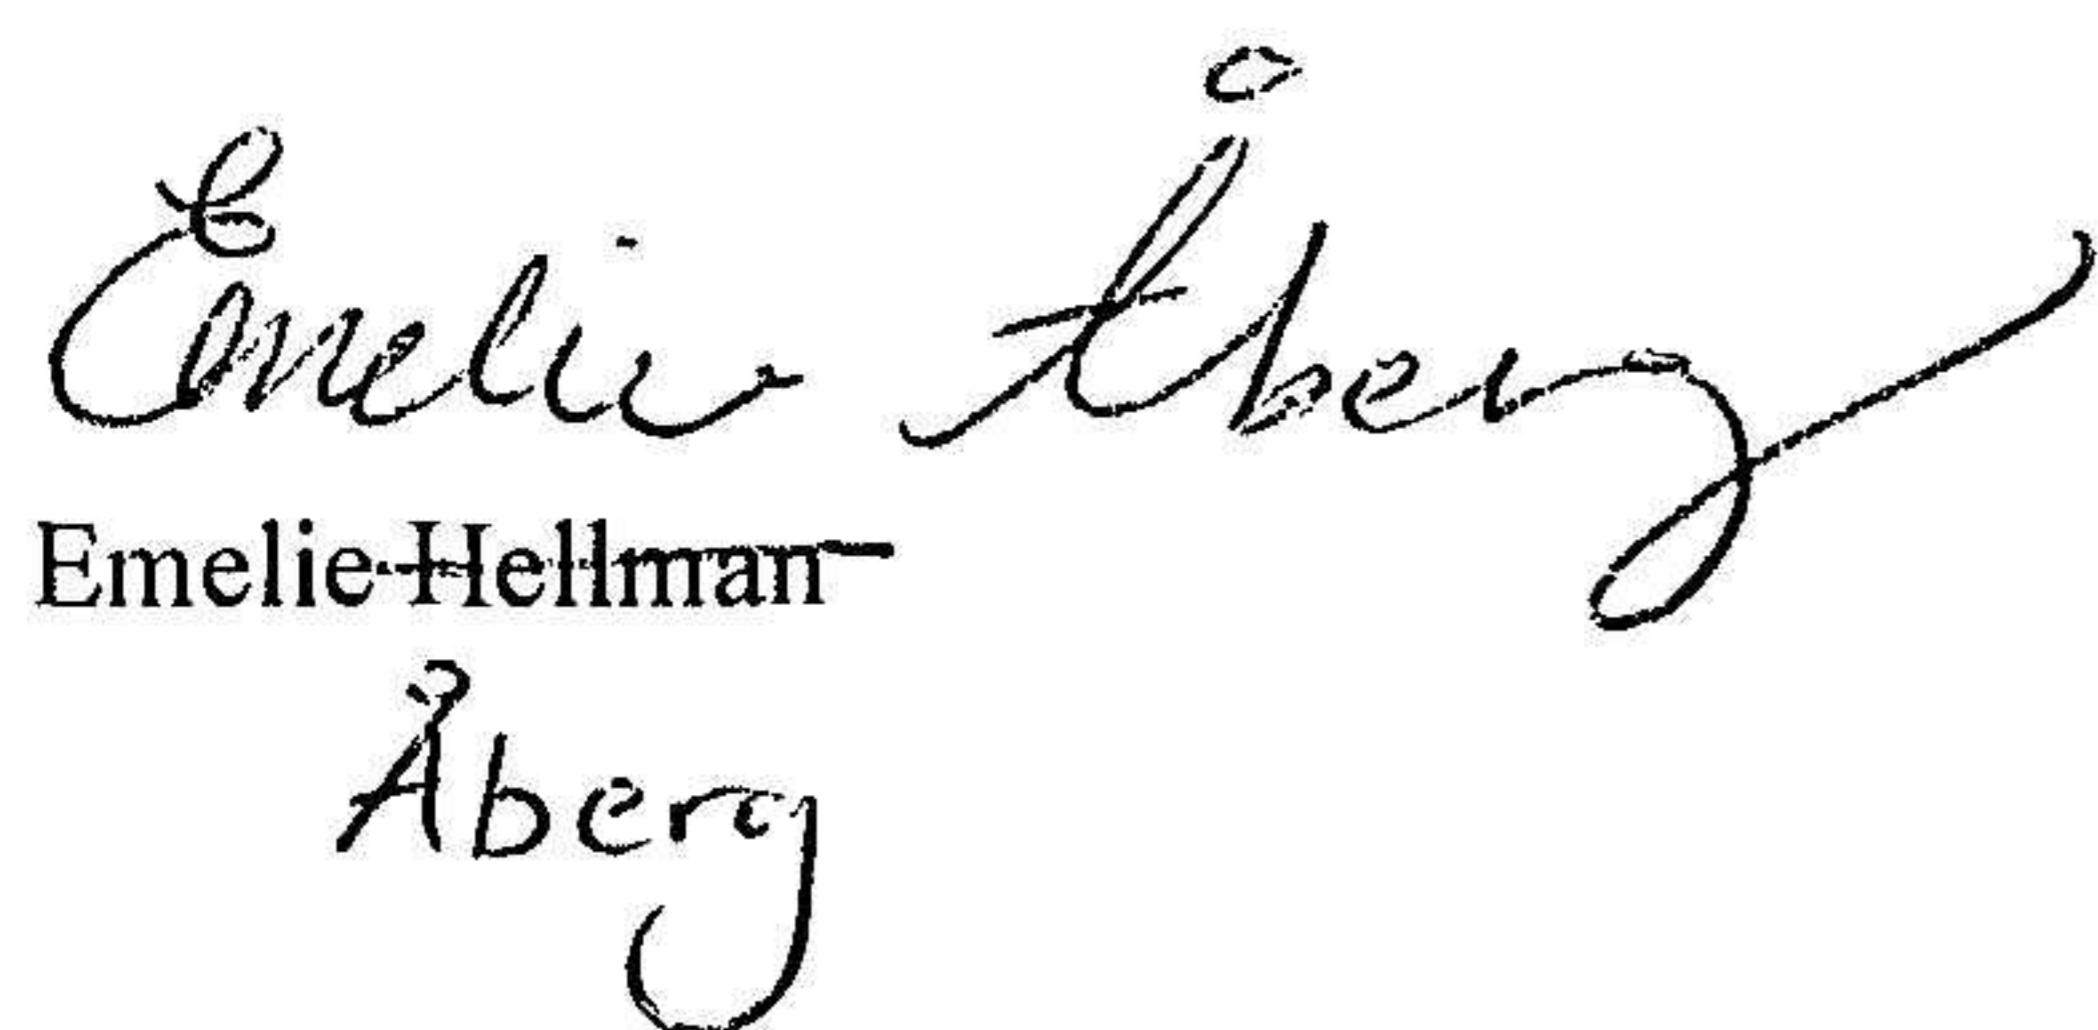 Emelie Åberg
Emelie Hellman
Åberg